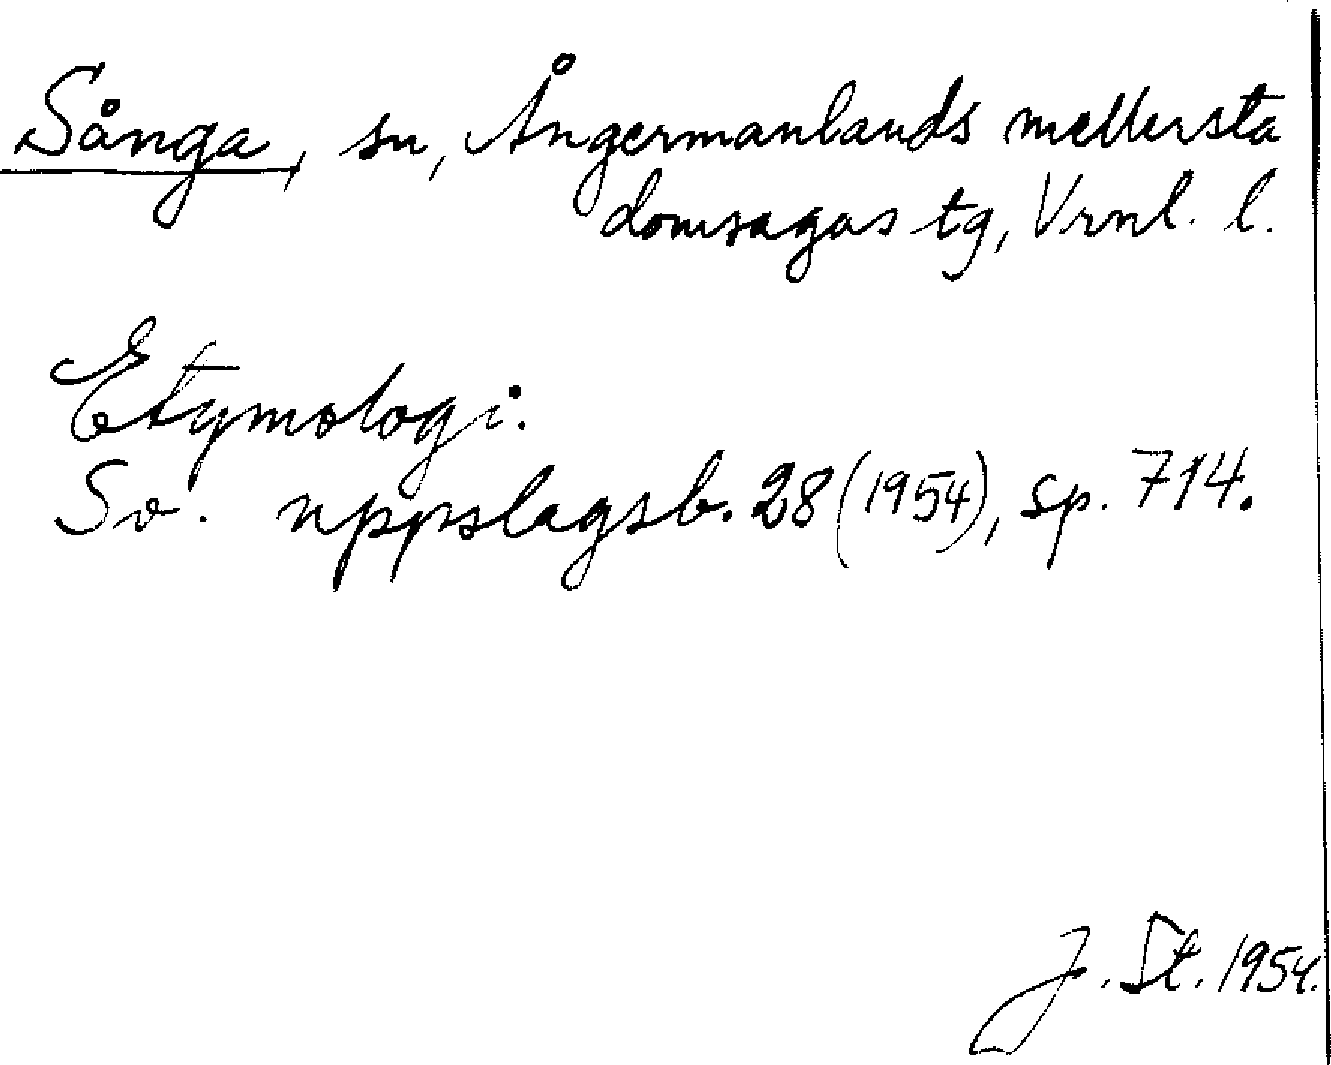 Sånga, sn, Ångermanlands mellersta
domsagas tg, Vrnl. l.
Etymologi.
Sv. uppslagsb. 28 (1954), sp. 714.
J. St. 1954.